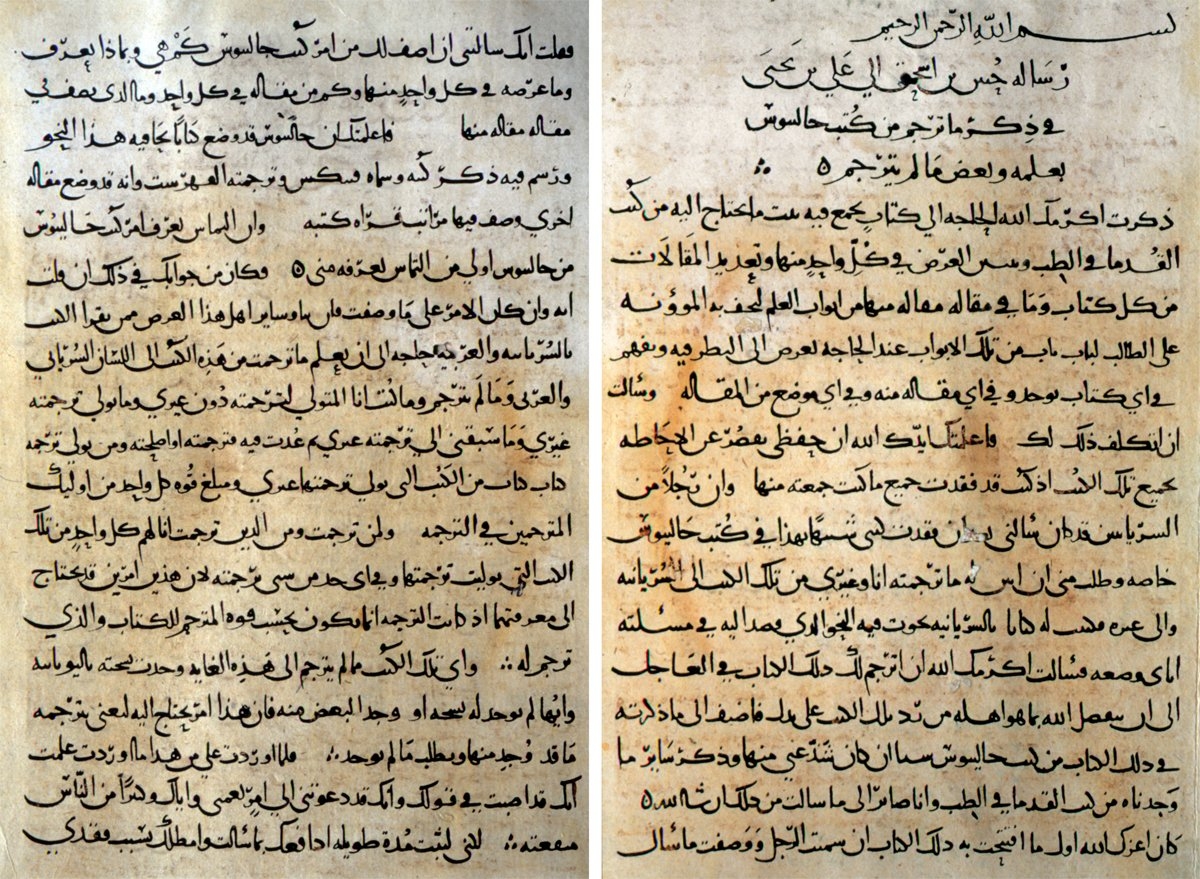 بسم الله الرحمن الرحيم
رسالة حنين بن اسحق الى علي بن يحيى
في ذكر ما ترجم من كتب جالينوس
بعلمه وبعض ما لم يترجم
ذكرت اكرمك الله الحاجه الى كتاب يجمع فيه ثبت ما يحتاج اليه من كتب
القدما في الطب وتبيين الغرض في كل واحد منها وتعديد المقالات
من كل كتاب وما في مقاله مقاله منها من ابواب العلم ليخف به المؤونه
على الطالب لباب باب من تلك الابواب عند الحاجه تعرض الى النظر فيه ويفهم
في اي كتاب يوجد وفي اي مقاله منه وفي اي موضع من المقاله وسالت
ان اتكلف ذلك لك فاعلمتك ايدك الله ان حفظي يقصر عن الاحاطه
بجميع تلك الكتب اذ كنت قد فقدت جميع ما كنت جمعته منها وان رجلا من
السريانيين قد كان سالني بعد ان فقدت كتبي شبيها بهذا في كتب جالينوس
خاصه وطلب مني ان ابين له ما ترجمته انا وغيري من تلك الكتب الى السريانيه
والى غيره فكتبت له كتابا بالسريانيه نحوت فيه النحو الذي قصد اليه في مسئلته
اياي وضعه فسالت اكرمك الله ان اترجم لك ذلك الكتاب في العاجل
الى ان يتفضل الله بما هو اهله من رد تلك الكتب على يدك فاضيف الى ما ذكرته
في ذلك الكتاب من كتب جالينوس شيا ان كان شذ عني منها وذكر ساير ما
وجدناه من كتب القدما في الطب وانا صاير الى ما سالت من ذلك ان شا الله
كان اعزك الله اول ما افتتحت به ذلك الكتاب ان سميت الرجل ووصفت ما سال
فقلت انك سالتني ان اصف لك من امر كتب جالينوس كم هي وبماذا يعرف
وما غرضه في كل واحد منها وكم من مقاله في كل واحد وما الذي يصف في
مقاله مقاله منها فاعلمتك ان جالينوس قد وضع كتابا نحا فيه هذا النحو
ورسم فيه ذكر كتبه وسماه فينكس وترجمته الفهرست وانه قد وضع مقاله
اخرى وصف فيها مراتب قراه كتبه وان التماس تعرف امر كتب جالينوس
من جالينوس اولى من التماس تعرفه مني فكان من جوابك في ذلك ان قلت
انه وان كان الامر على ما وصفت فان بنا وساير اهل هذا الغرض ممن يقرا الكتب
بالسريانيه والعربيه حاجه الى ان يعلم ما ترجمت من هذه الكتب الى اللسان السرياني
والعربى وما لم يترجم وما كنت انا المتولي لترجمته دون غيري وما تولى ترجمته
غيري وما سبقني الى ترجمته غيري ثم عدت فيه فترجمته او اصلحته ومن تولى ترجمه
كتاب كتاب من الكتب التي تولى ترجمتها غيري ومبلغ قوه كل واحد من اوليك
المترجمين في الترجمه ولمن ترجمت ومن الذين ترجمت انا لهم كل واحد من تلك
الكتب التي توليت ترجمتها وفي اي حد من سني ترجمته لان هذين امرين قد يحتاج
الى معرفتهما اذ كانت الترجمه انما تكون بحسب قوه المترجم للكتاب والذي
ترجم له واي تلك الكتب مما لم يترجم الى هذه الغايه وجدت نسخته باليونانيه
وايها لم توجد له نسخه او وجد البعض منه فان هذا امر يحتاج اليه ليعنى بترجمه
ما قد وجد منها وبطلب ما لم يوجد فلما اوردت علي من هذا ما اوردت علمت
انك قد اصبت في قولك وانك قد دعوتني الى امر يعمني واياك وكثيرا من الناس
منفعته لكني لبثت مدة طويله ادافعك بما سالت وامطلك بسبب فقدي